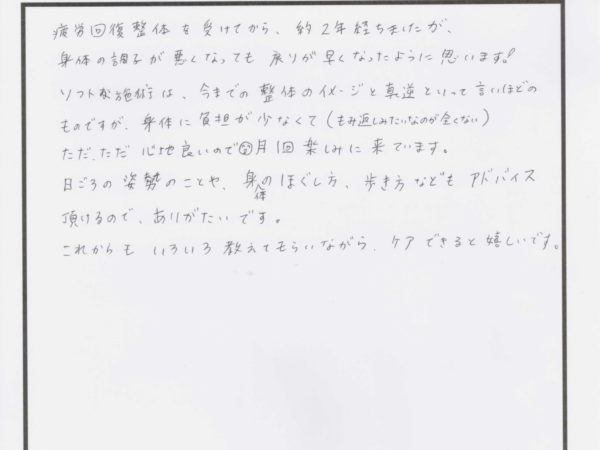 疲労回復整体を受けてから、約2年経ちましたが、
身体の調子が悪くなっても戻りが早くなったように思います!
ソフトな施術は、今までの整体のイメージと真逆といって言いほどの
ものですが、身体に負担が少なくて(もみ返しみたいなのが全くない)
ただ、ただ心地良いので月1回楽しみに来ています。
日ごろの姿勢のことや、身体のほぐし方、歩き方などもアドバイス
頂けるので、ありがたいです。
これからもいろいろ教えてもらいながら、ケアできると嬉しいです。